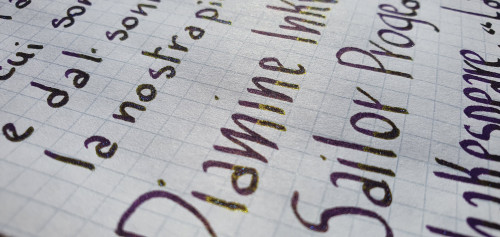 cui son
e dal sonn
la nostra pi
Diamine Ink
Sailor Proge
hakespeare "